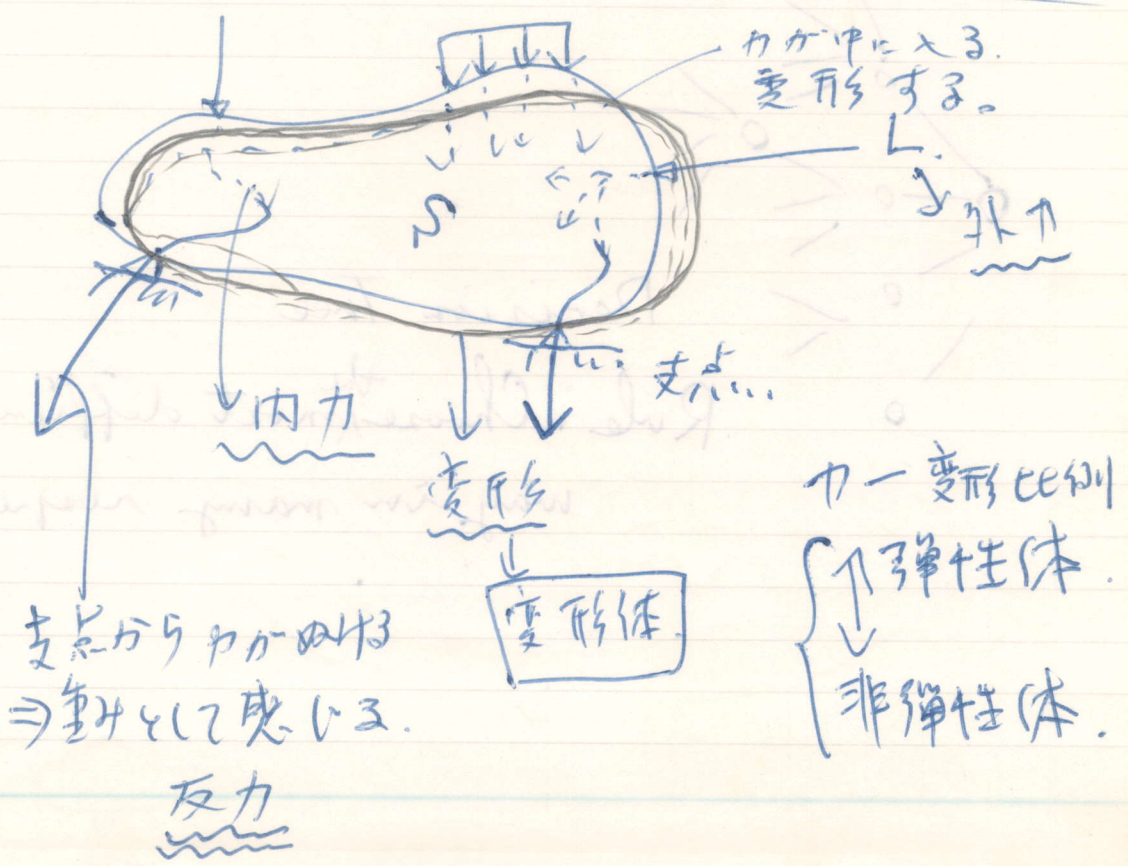 力が中に入る.
変形する。
L.
外力
S
支点
内力
変形
変形体.
力ー変形比例
弾性体.
非弾性体.
支点から力がぬける
⇒重みとして感じる.
反力